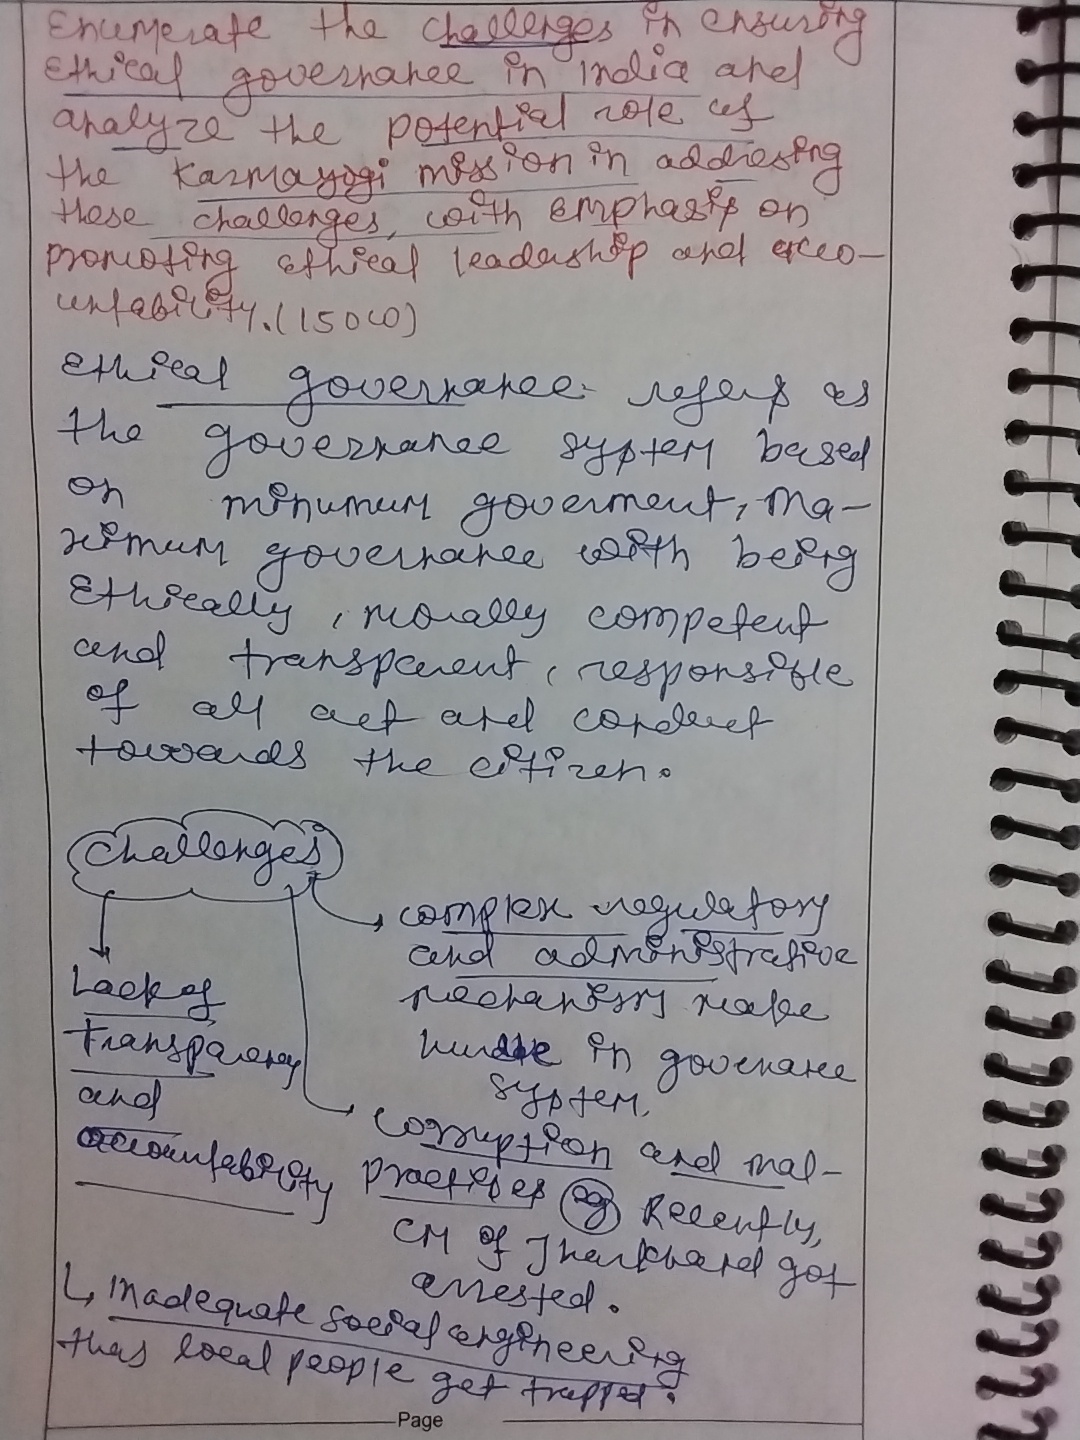 Enumerate the challenges in ensuring
Ethical governance in India and
analyze the potential role of
the Karmayogi mission in addresing
these challenges, with Emphasis on
promoting Ethical leadership and acco-
untability. (150w)
Ethical governance refers as
the governance system based
on minumum goverment, Ma-
ximum governance with being
Ethically, morally competent
and transparent, responsible
of all act and conduct
towards the citizen.
Challenges
complex regulatory
and administrative
mechanism make
hurdle in governance
system.
Lack of
transparency
and
accountability
corruption and mal-
practises eg Recently,
CM of Jharkhand got
arrested.
↳ Inadequate social engineering
thus local people get trapped.
Page